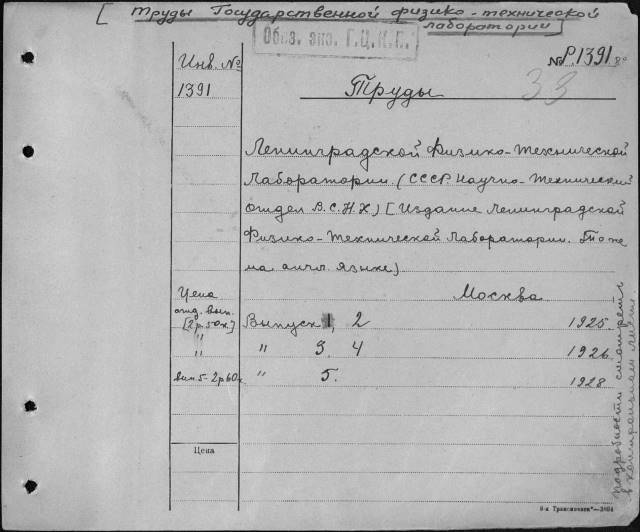 [ Труды Государственной физико-технической
лаборатории ]
Обяз. экз. Г.Ц.К.П.
Инв. №
1391
№ Р.1391 8º
33
Труды
Ленинградской Физико-Технической
Лаборатории. (СССР. Научно-Технический
отдел В.С.Н.Х) [Издание Ленинградской
Физико-Технической Лаборатории. То же
на англ. языке)
Москва
Цена
отд. вып.
[2р.50к.]
Выпуск 1, 2 1925
" " 3. 4 1926
"
вып 5-2р60к. " 5. 1928
Цена
подробности смотреть
в контрольном листе.
6-я Транспечать—3604